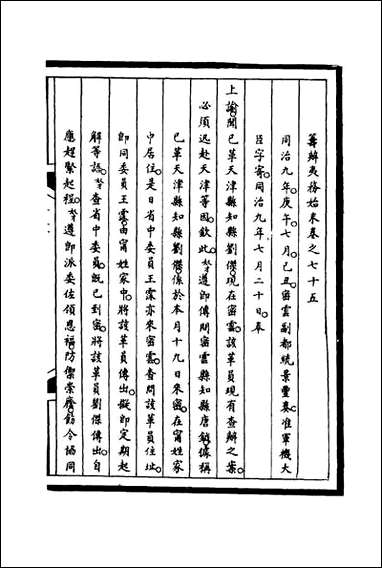 籌辦夷務始末卷之七十五
同治九年庚午七月己丑密雲副都統景豐奏准軍機大
臣字寄同治九年七月二十日奉
上諭聞已革天津縣知縣劉傑現在密雲該革員現有查辦之案
必須迅赴天津等因欽此奴才遵即傳問密雲縣知縣唐 據稱
已革天津縣知縣劉傑係於本月十九日來密在甯姓家
中居住是日省中委員王霖亦來密雲查問該革員住址
即同委員王霖由甯姓家中將該革員傳出擬即定期起
解等語奴才查省中委員既已到密將該革員劉傑傳出自
應趕緊起程奴才遵即派委佐領恩福防禦崇 飭令協同